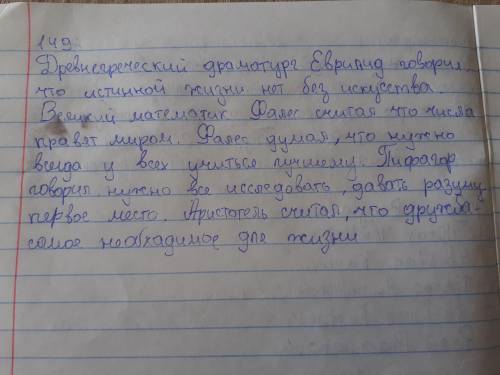 149
Древнегреческий драматург Еврипид говорил
что истиной жизни нет без искуства.
Великий математик Фалес считал что числа
правят миром. Фалес думал, что нужно
всегда у всех учиться лучшему. Пифагор
говорил нужно все исследовать, давать разуму
первое место. Аристотель считал, что дружба-
самое необхадимое для жизни